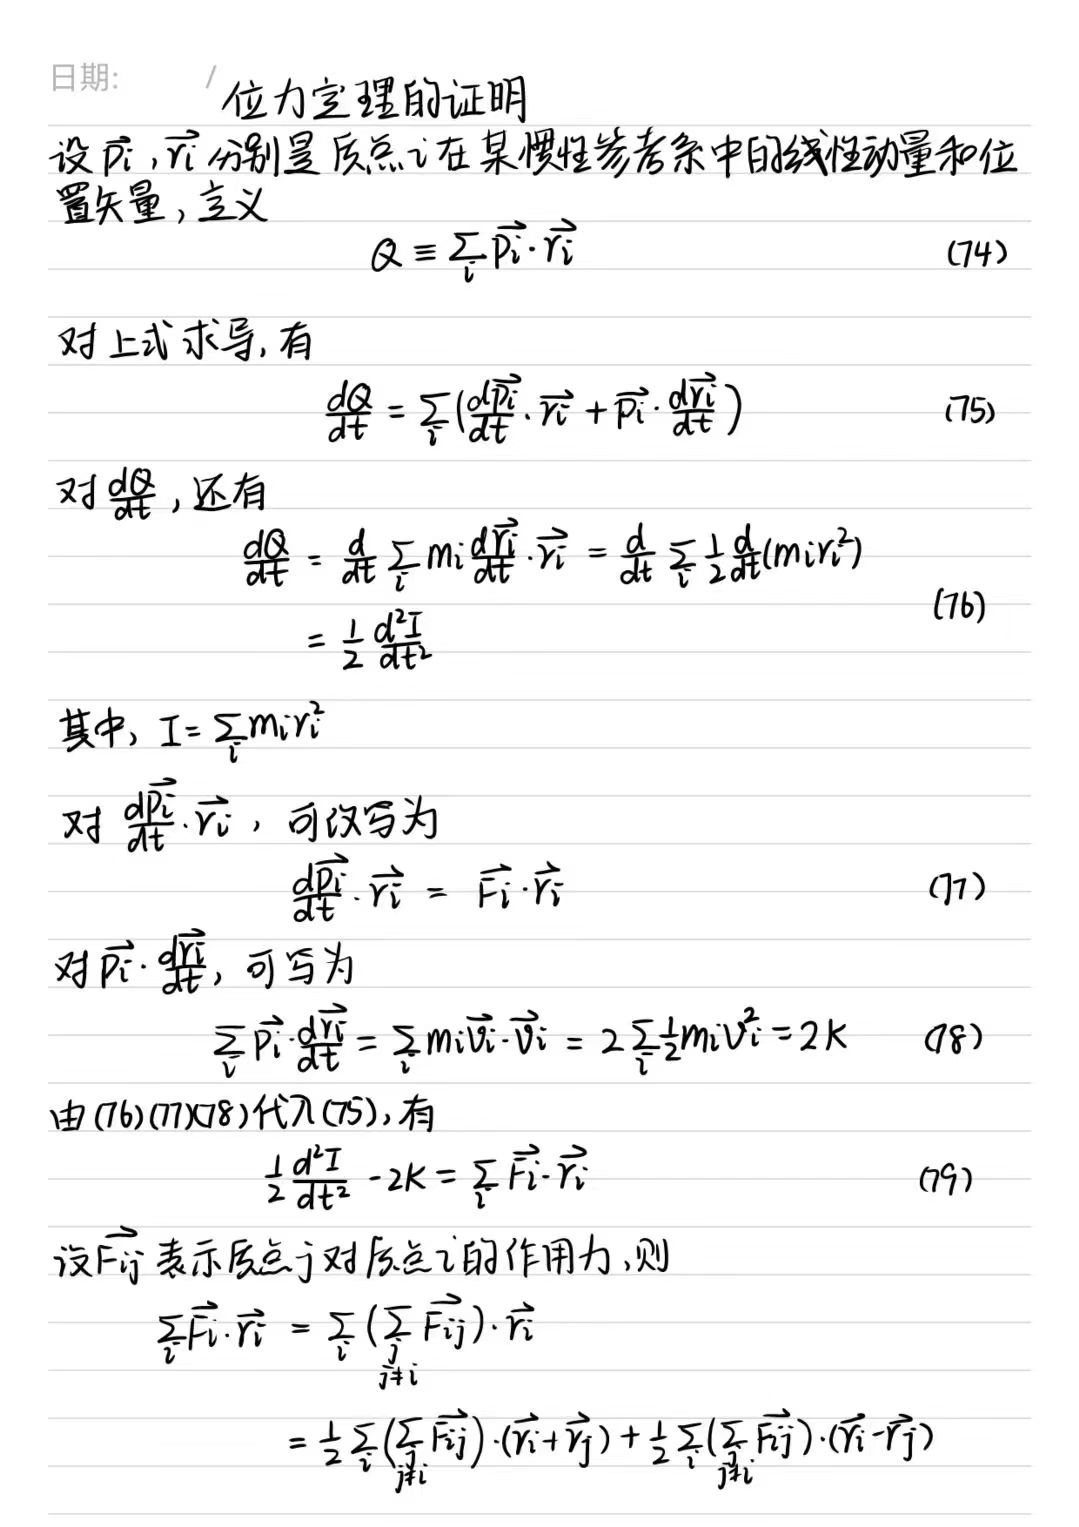 日期: /
位力定理的证明
设 p⃗i, r⃗i 分别是质点i在某惯性参考系中的线性动量和位
置矢量, 定义
Q ≡ ∑_i p⃗i · r⃗i (74)
对上式求导, 有
dQ/dt = ∑_i (dp⃗i/dt · r⃗i + p⃗i · dr⃗i/dt) (75)
对 dQ/dt , 还有
dQ/dt = d/dt ∑_i mi dr⃗i/dt · r⃗i = d/dt ∑_i 1/2 d/dt (miri²)
= 1/2 d²I/dt² (76)
其中, I = ∑_i miri²
对 dp⃗i/dt · r⃗i , 可改写为
dp⃗i/dt · r⃗i = F⃗i · r⃗i (77)
对 p⃗i · dr⃗i/dt, 可写为
∑_i p⃗i · dr⃗i/dt = ∑_i miv⃗i · v⃗i = 2∑_i 1/2 miv²i = 2K (78)
由(76)(77)(78)代入(75), 有
1/2 d²I/dt² - 2K = ∑_i F⃗i · r⃗i (79)
设F⃗ij 表示质点j对质点i的作用力, 则
∑_i F⃗i · r⃗i = ∑_i (∑_{j j≠i} F⃗ij) · r⃗i
= 1/2 ∑_i (∑_{j j≠i} F⃗ij) · (r⃗i + r⃗j) + 1/2 ∑_i (∑_{j j≠i} F⃗ij) · (r⃗i - r⃗j)